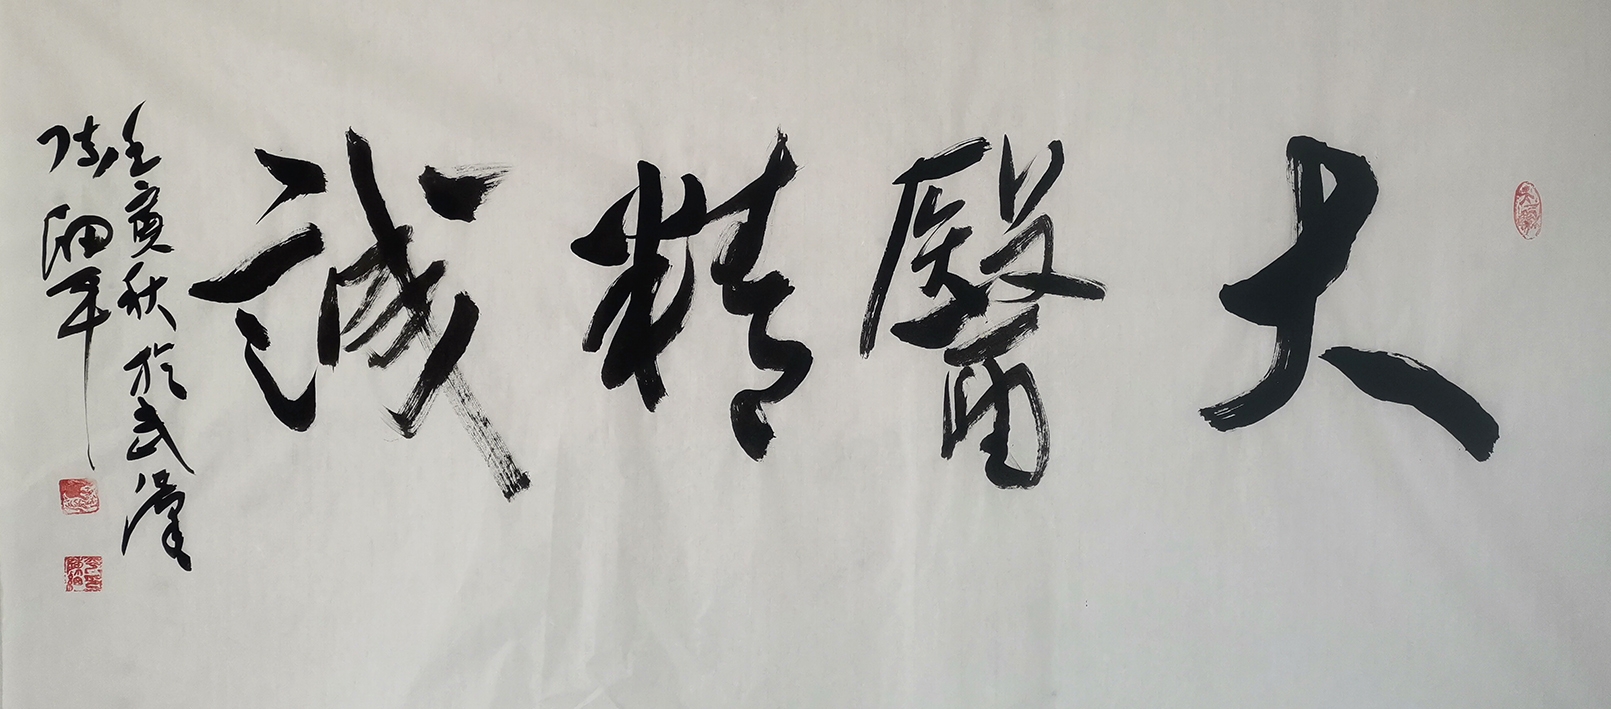 大醫精誠
壬寅秋於武漢
陈細平